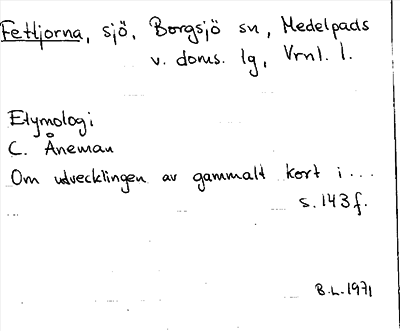 Fettjorna, sjö, Borgsjö sn, Medelpads
v. doms. lg, Vrnl. l.
Etymologi
C. Åneman
Om utvecklingen av gammalt kort i...
s. 143 f.
B.L. 1971